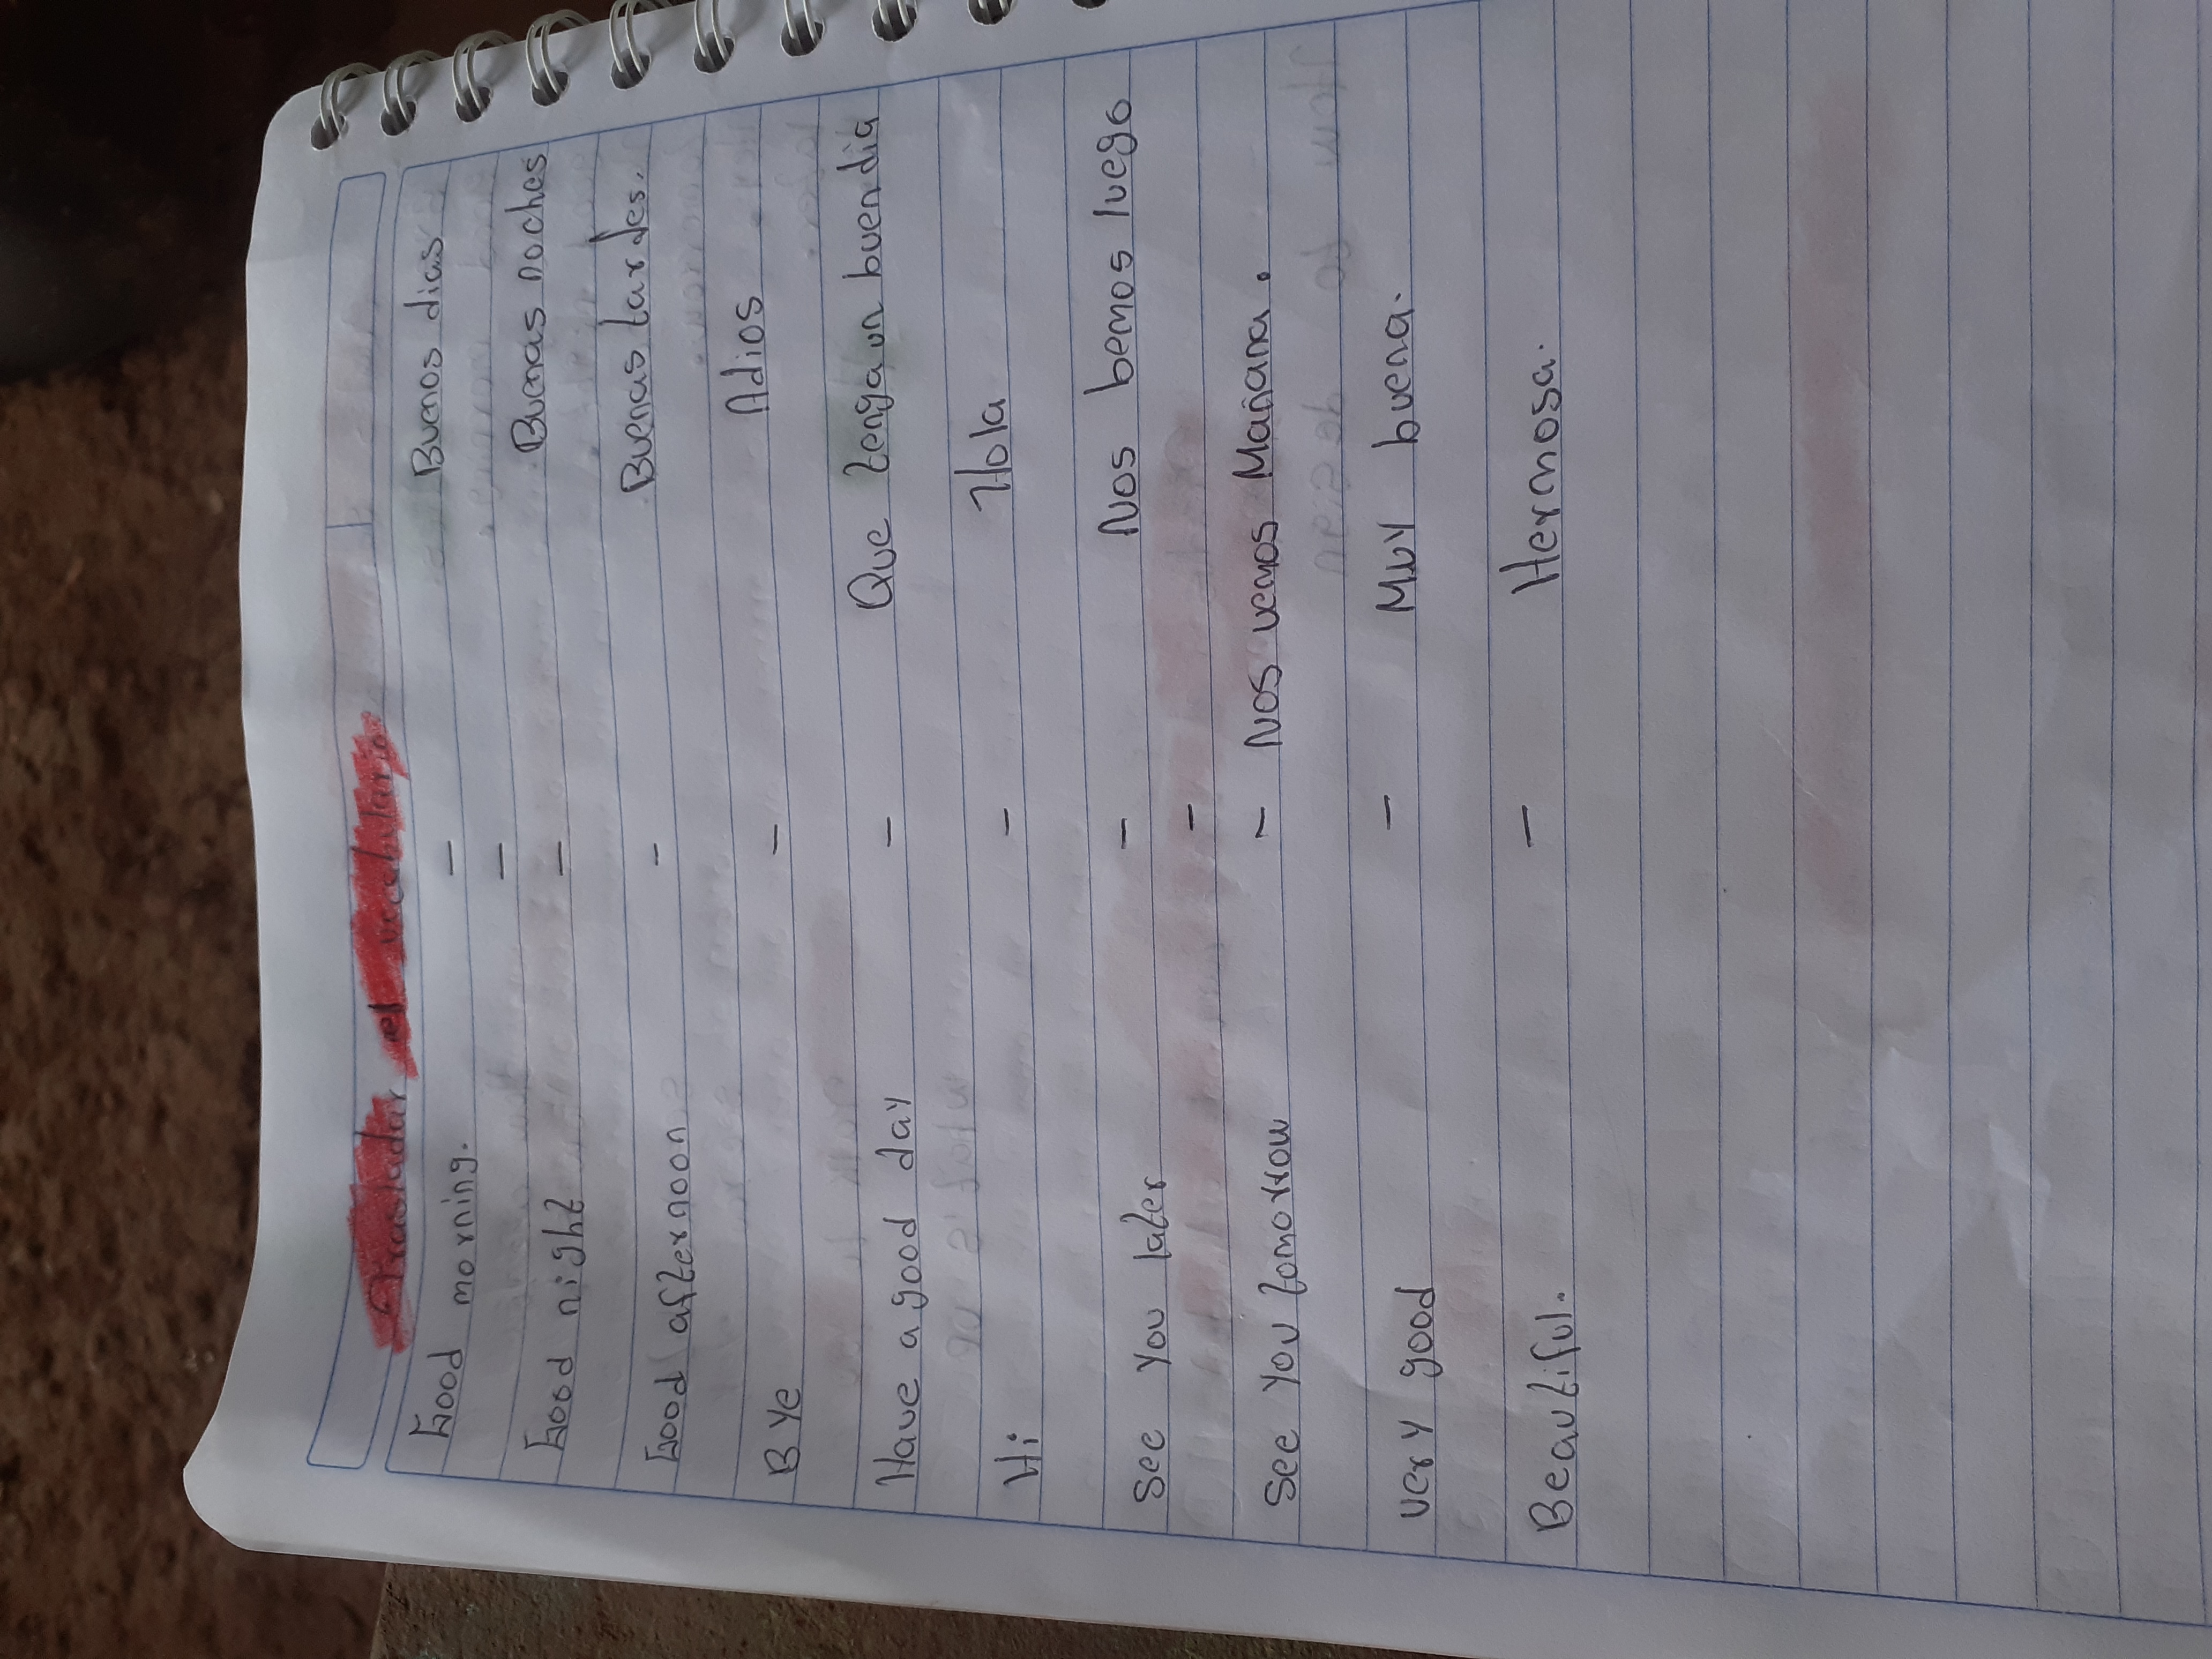 Trasladar el vocabulario
Good morning. - Buenos dias
-
Good night - Buenas noches
Good afternoon - Buenas tardes.
Bye - Adios
Have a good day - Que tenga un buen dia
Hi - Hola
See you later - Nos bemos luego
-
See you tomorrow - Nos vemos Mañana.
very good - Muy buena.
Beautiful. - Hermosa.